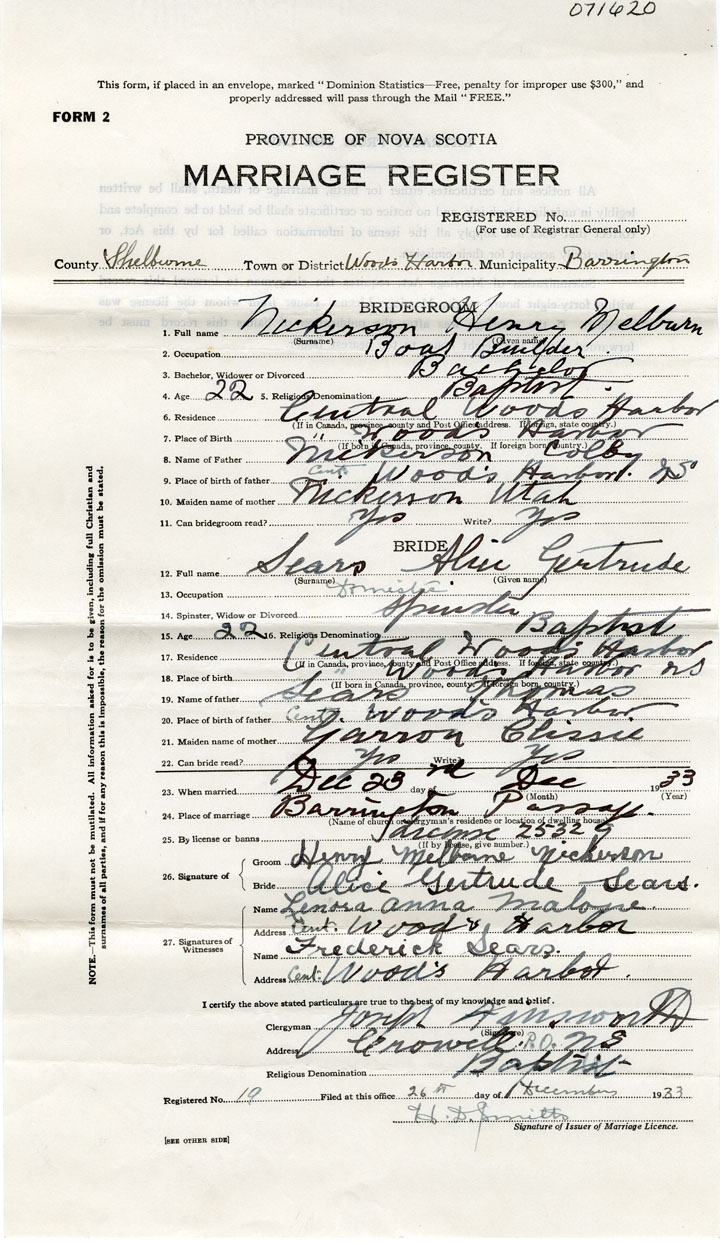 071620
This form, if placed in an envelope, marked "Dominion Statistics—Free, penalty for improper use $300," and
properly addressed will pass through the Mail "FREE."
FORM 2
PROVINCE OF NOVA SCOTIA
MARRIAGE REGISTER
REGISTERED No.
(For use of Registrar General only)
County Shelburne Town or District Woods Harbor Municipality Barrington
BRIDEGROOM
1. Full name Nickerson Henry Melburn
(Surname) (Given name)
2. Occupation Boat Builder
3. Bachelor, Widower or Divorced Bachelor
4. Age 22 5. Religious Denomination Baptist
6. Residence Central Woods Harbor
(If in Canada, province, county and Post Office address. If foreign, state country.)
7. Place of Birth " Woods Harbor
(If born in Canada, province, county. If foreign born, country.)
8. Name of Father Nickerson Colby
9. Place of birth of father Cent. Wood's Harbor. NS
10. Maiden name of mother Nickerson Utah
11. Can bridegroom read? Yes Write? Yes
BRIDE
12. Full name Sears Alice Gertrude
(Surname) (Given name)
13. Occupation Domestic
14. Spinster, Widow or Divorced Spinster
15. Age 22 16. Religious Denomination Baptist
17. Residence Central Woods Harbor
(If in Canada, province, county and Post Office address. If foreign, state country.)
18. Place of birth " Woods Harbor NS
(If born in Canada, province, county. If foreign born, country.)
19. Name of father Sears Thomas
20. Place of birth of father Cent. Wood's Harbor
21. Maiden name of mother Garron Clissie
22. Can bride read? Yes Write? Yes
23. When married Dec 23rd day of Dec 1933
(Month) (Year)
24. Place of marriage Barrington Passage.
(Name of church or clergyman's residence or location of dwelling house)
25. By license or banns license 25329
(If by license, give number.)
26. Signature of Groom Henry Melburne Nickerson
Bride Alice Gertrude Sears.
27. Signatures of Witnesses
Name Lenora Anna Malone.
Address Cent. Wood's Harbor
Name Frederick Sears.
Address Cent. Wood's Harbor.
I certify the above stated particulars are true to the best of my knowledge and belief.
Clergyman Joseph
Address Crowell. P.O. NS
Religious Denomination Baptist
Registered No. 19 Filed at this office 26th day of December 1933
H. D. Smith
Signature of Issuer of Marriage Licence.
[SEE OTHER SIDE]
NOTE.—This form must not be mutilated. All information asked for is to be given, including full Christian and
surnames of all parties, and if for any reason this is impossible, the reason for the omission must be stated.